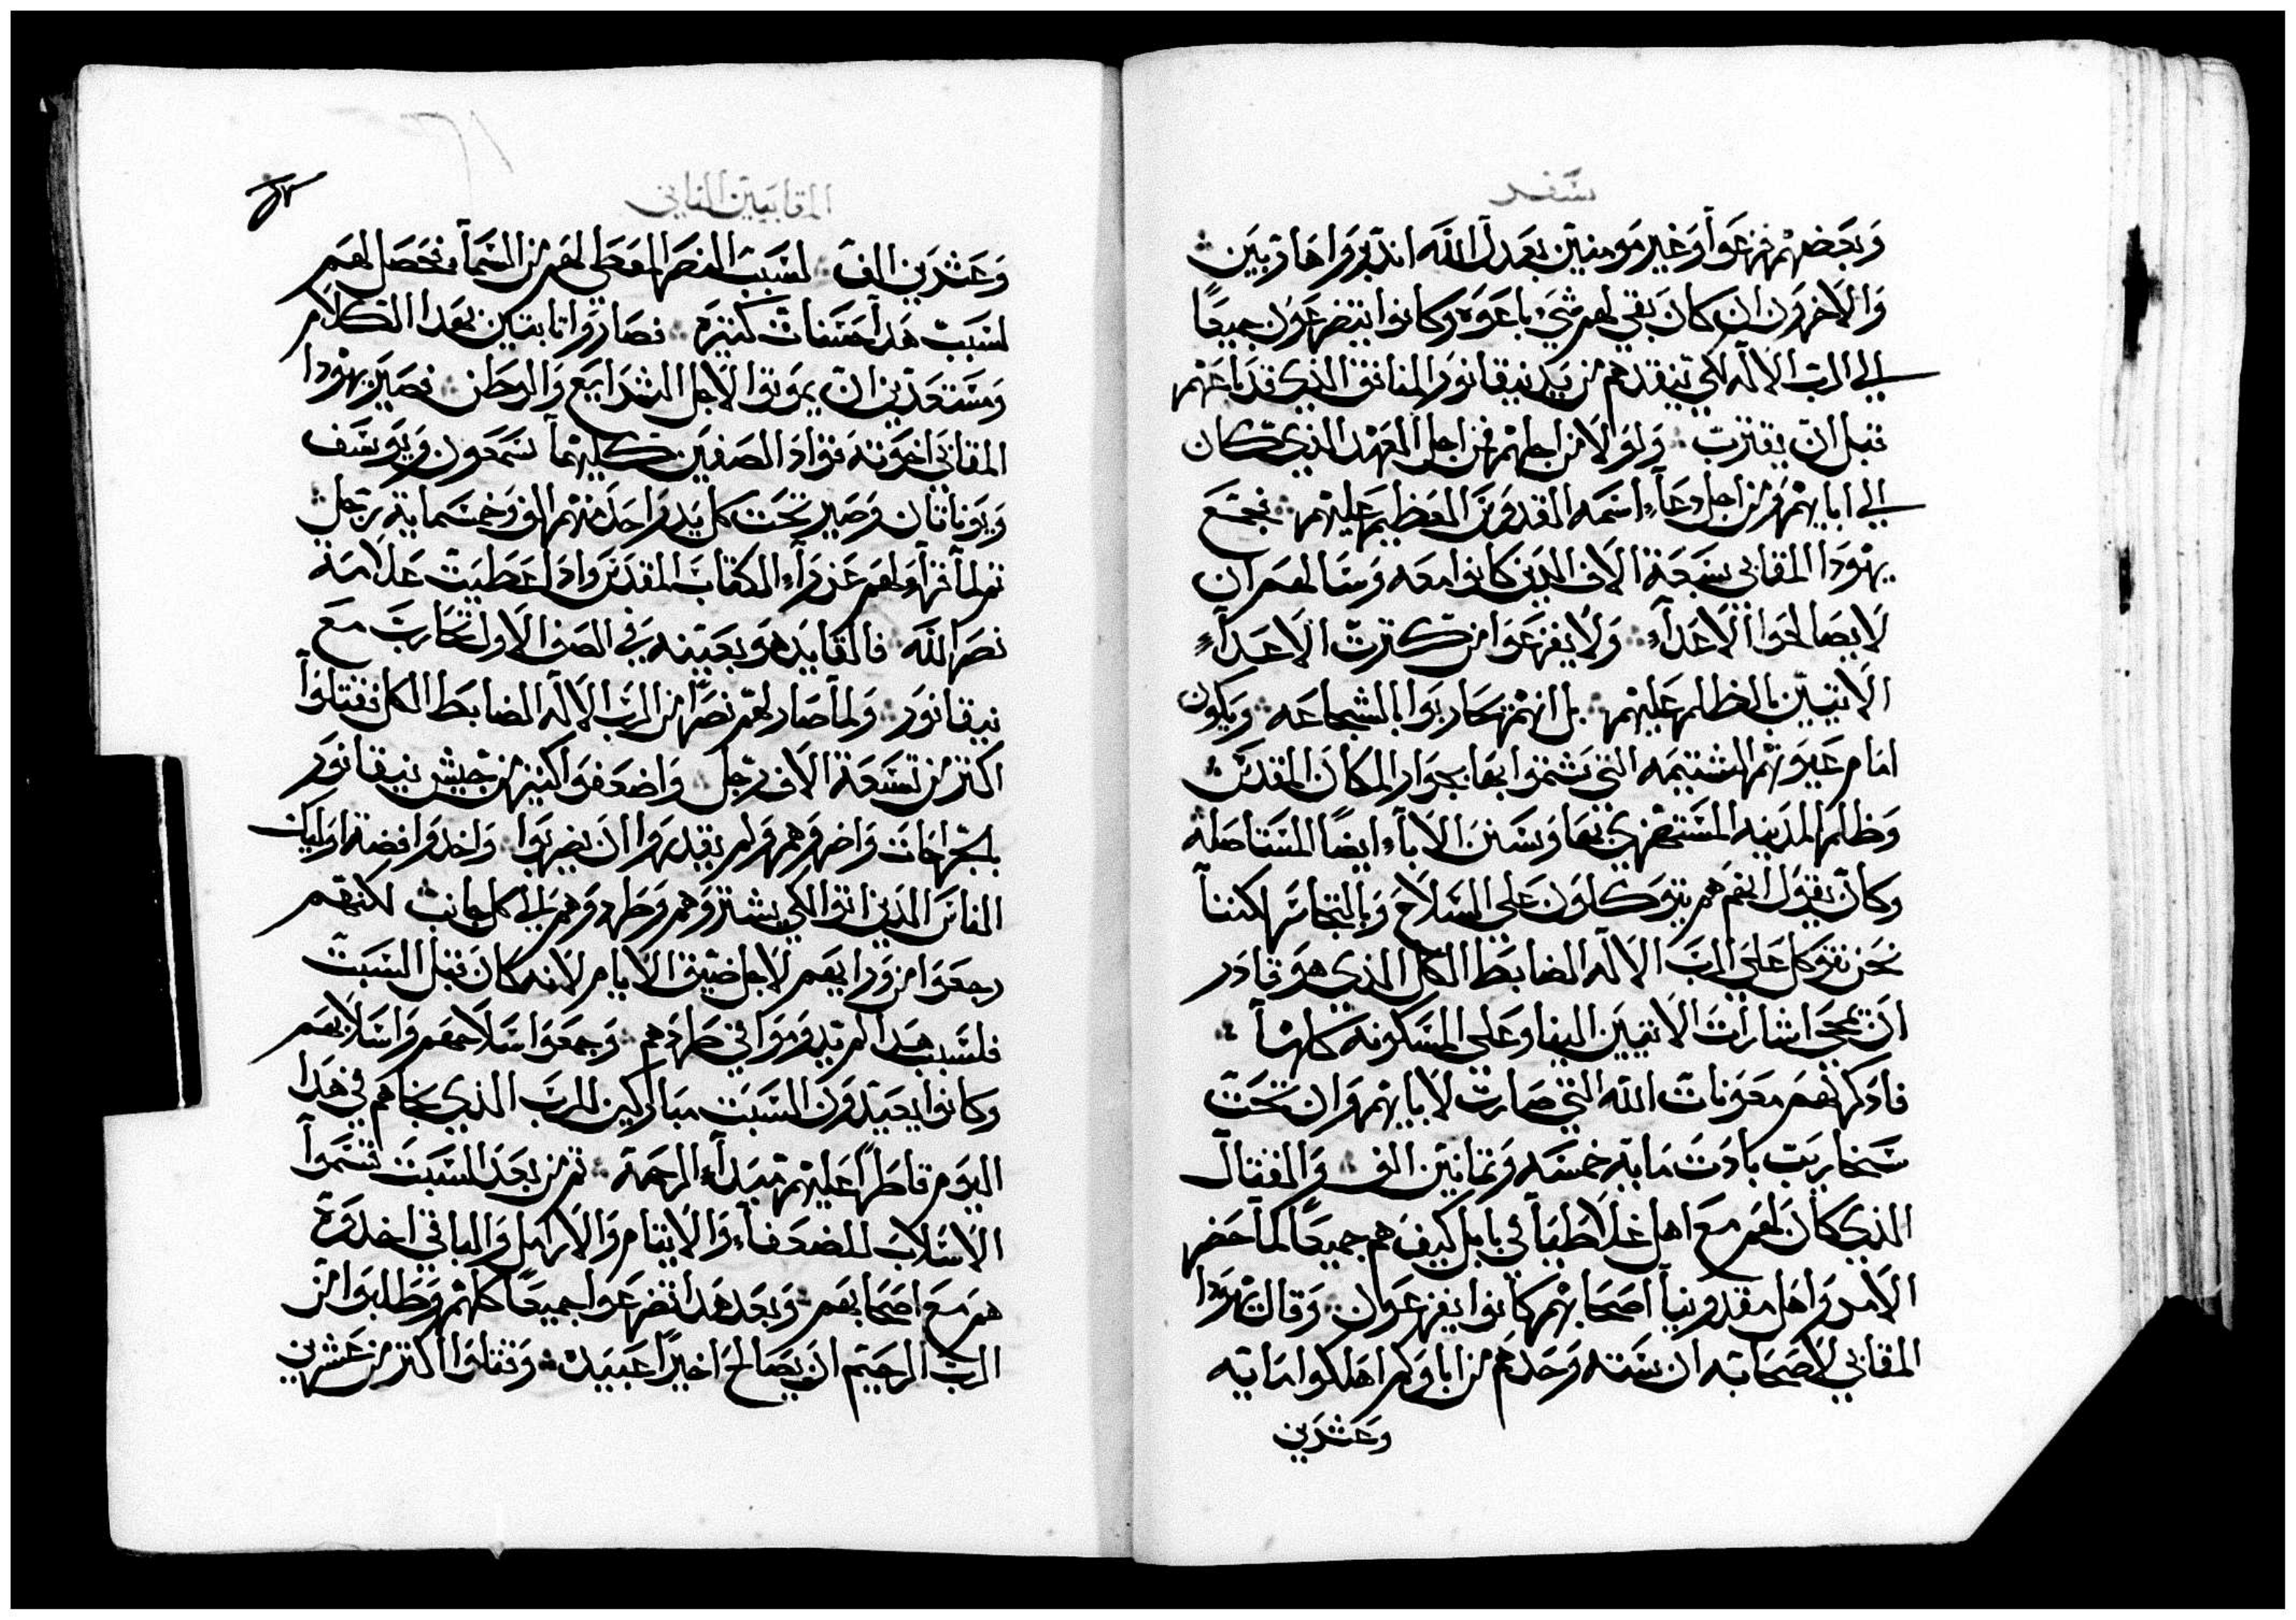 سفر
وبعضهم فزعوا وغير مومنين بعدل الله اندبروا هاربين
والاخرون ان كان بقي لهم شي باعوه وكانوا يتضرعون جميعًا
الي الرب الاله لكي ينقدهم من يد نيقانور المنافق الذي قد باعهم
قبل ان يقترب ولو لا من اجلهم فمن اجل العهد الذي كان
الي ابايهم ومن اجل دعاء اسمه القدوس العظيم عليهم فجمع
يهودا المقابي سبعة الاف الدين كانوا معه وسالهم ان
لا يصالحوا الاعداء ولا يفزعوا من كترت الاعداء
الاتيين بالظلم عليهم بل انهم يحاربوا بالشجاعه ويكون
امام عيونهم الشتيمه التي شتموا بها بجوار المكان المقدس
وظلم المدينه المستهزي بها وسنن الاباء ايضًا المستاصله
وكان يقول انهم هم يتوكلون علي السلاح وبالتجاسر لكننا
نحن نتوكل علي الرب الاله الضابط الكل الذي هو قادر
ان يمحي اشارات الاتيين الينا وعلي المسكونه كلها
فادكرهم معونات الله التي صارت لابايهم وان تحت
سنحاريب بادت مايه خمسه وتمانين الف والقتال
الذي كان لهم مع اهل غلاطيا في بابل كيف هم جميعًا لما حضر
الامر واهل مقدونيا اصحابهم كانوا يفزعوان وقال يهودا
المقابي لاصحابه ان سته وحدهم من الاف اهلكوا مايه
وعشرين
المقابيين التاني
وعشرين الف لسبب النصر المعطي لهم من السماء فحصل لهم
لسبب هدا حسنات كتيره فصاروا تابتين بهدا الكلام
ومستعدين ان يموتوا لاجل الشرايع والوطن فصير يهودا
المقابي اخوته قواد الصفين كليهما سمعون ويوسف
ويوناتان وصير تحت كل يد واحد منهم الف وخمسمايه رجل
تم لما قراء لهم عزراء الكتاب المقدس واد اعطيت علامة
نصر الله فالقايد هو بعينه في الصف الاول تحارب مع
نيقانور ولما صار لهم نصرًا من الرب الاله الضابط الكل فقتلوا
اكتر من تسعة الاف رجل واضعفوا كتير من جيش نيقانور
بالجراحات واضروهم ولم يقدروا ان يضربوا واخدوا فضة اوليك
الناس الدين اتوا لكي يشتروهم وطردوهم الي كل جانب لكنهم
رجعوا من ورايهم لاجل ضيق الايام لانه كان قبل السبت
فلسبب هدا لم يدوموا في طردهم وجمعوا اسلاحهم واسلابهم
وكانوا يعيدون السبت مباركين للرب الذي نجاهم في هدا
اليوم قاطرًا عليهم مبداء الرحمة تم من بعد السبت قسموا
الاسلاب للضعفاء والايتام والارامل والباقي اخدوة
هم مع اصحابهم وبعد هدا تضرعوا جميعًا كلهم وطلبوا من
الرب الرحيم ان يصالح اخيرًا عبيده وقتلوا اكتر من عشرين